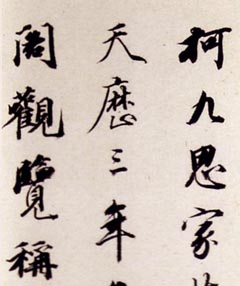 柯九思家
天曆三年
閣觀覽稱